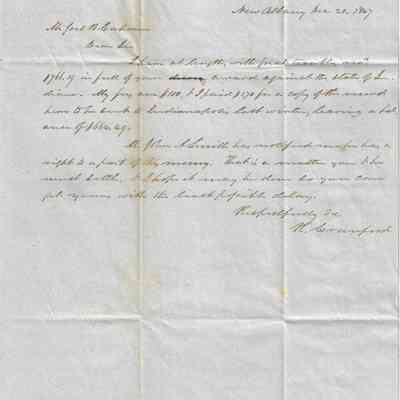 New Albany Dec 21, 1847
Dear Sir
I have at length, with great trouble, rec'd
in full of your award against the state of In-
diana. My fees are $100, & I paid $170 for a copy of the record
here to be sent to Indianapolis last winter, leaving a bal
ance of
Mr. John A. Smith has notified me he has a
right to a part of this money. That is a matter you & he
must settle, & I hope it may be done so you can
get yours with the least possible delay.
Respectfully &c
H. Crawford